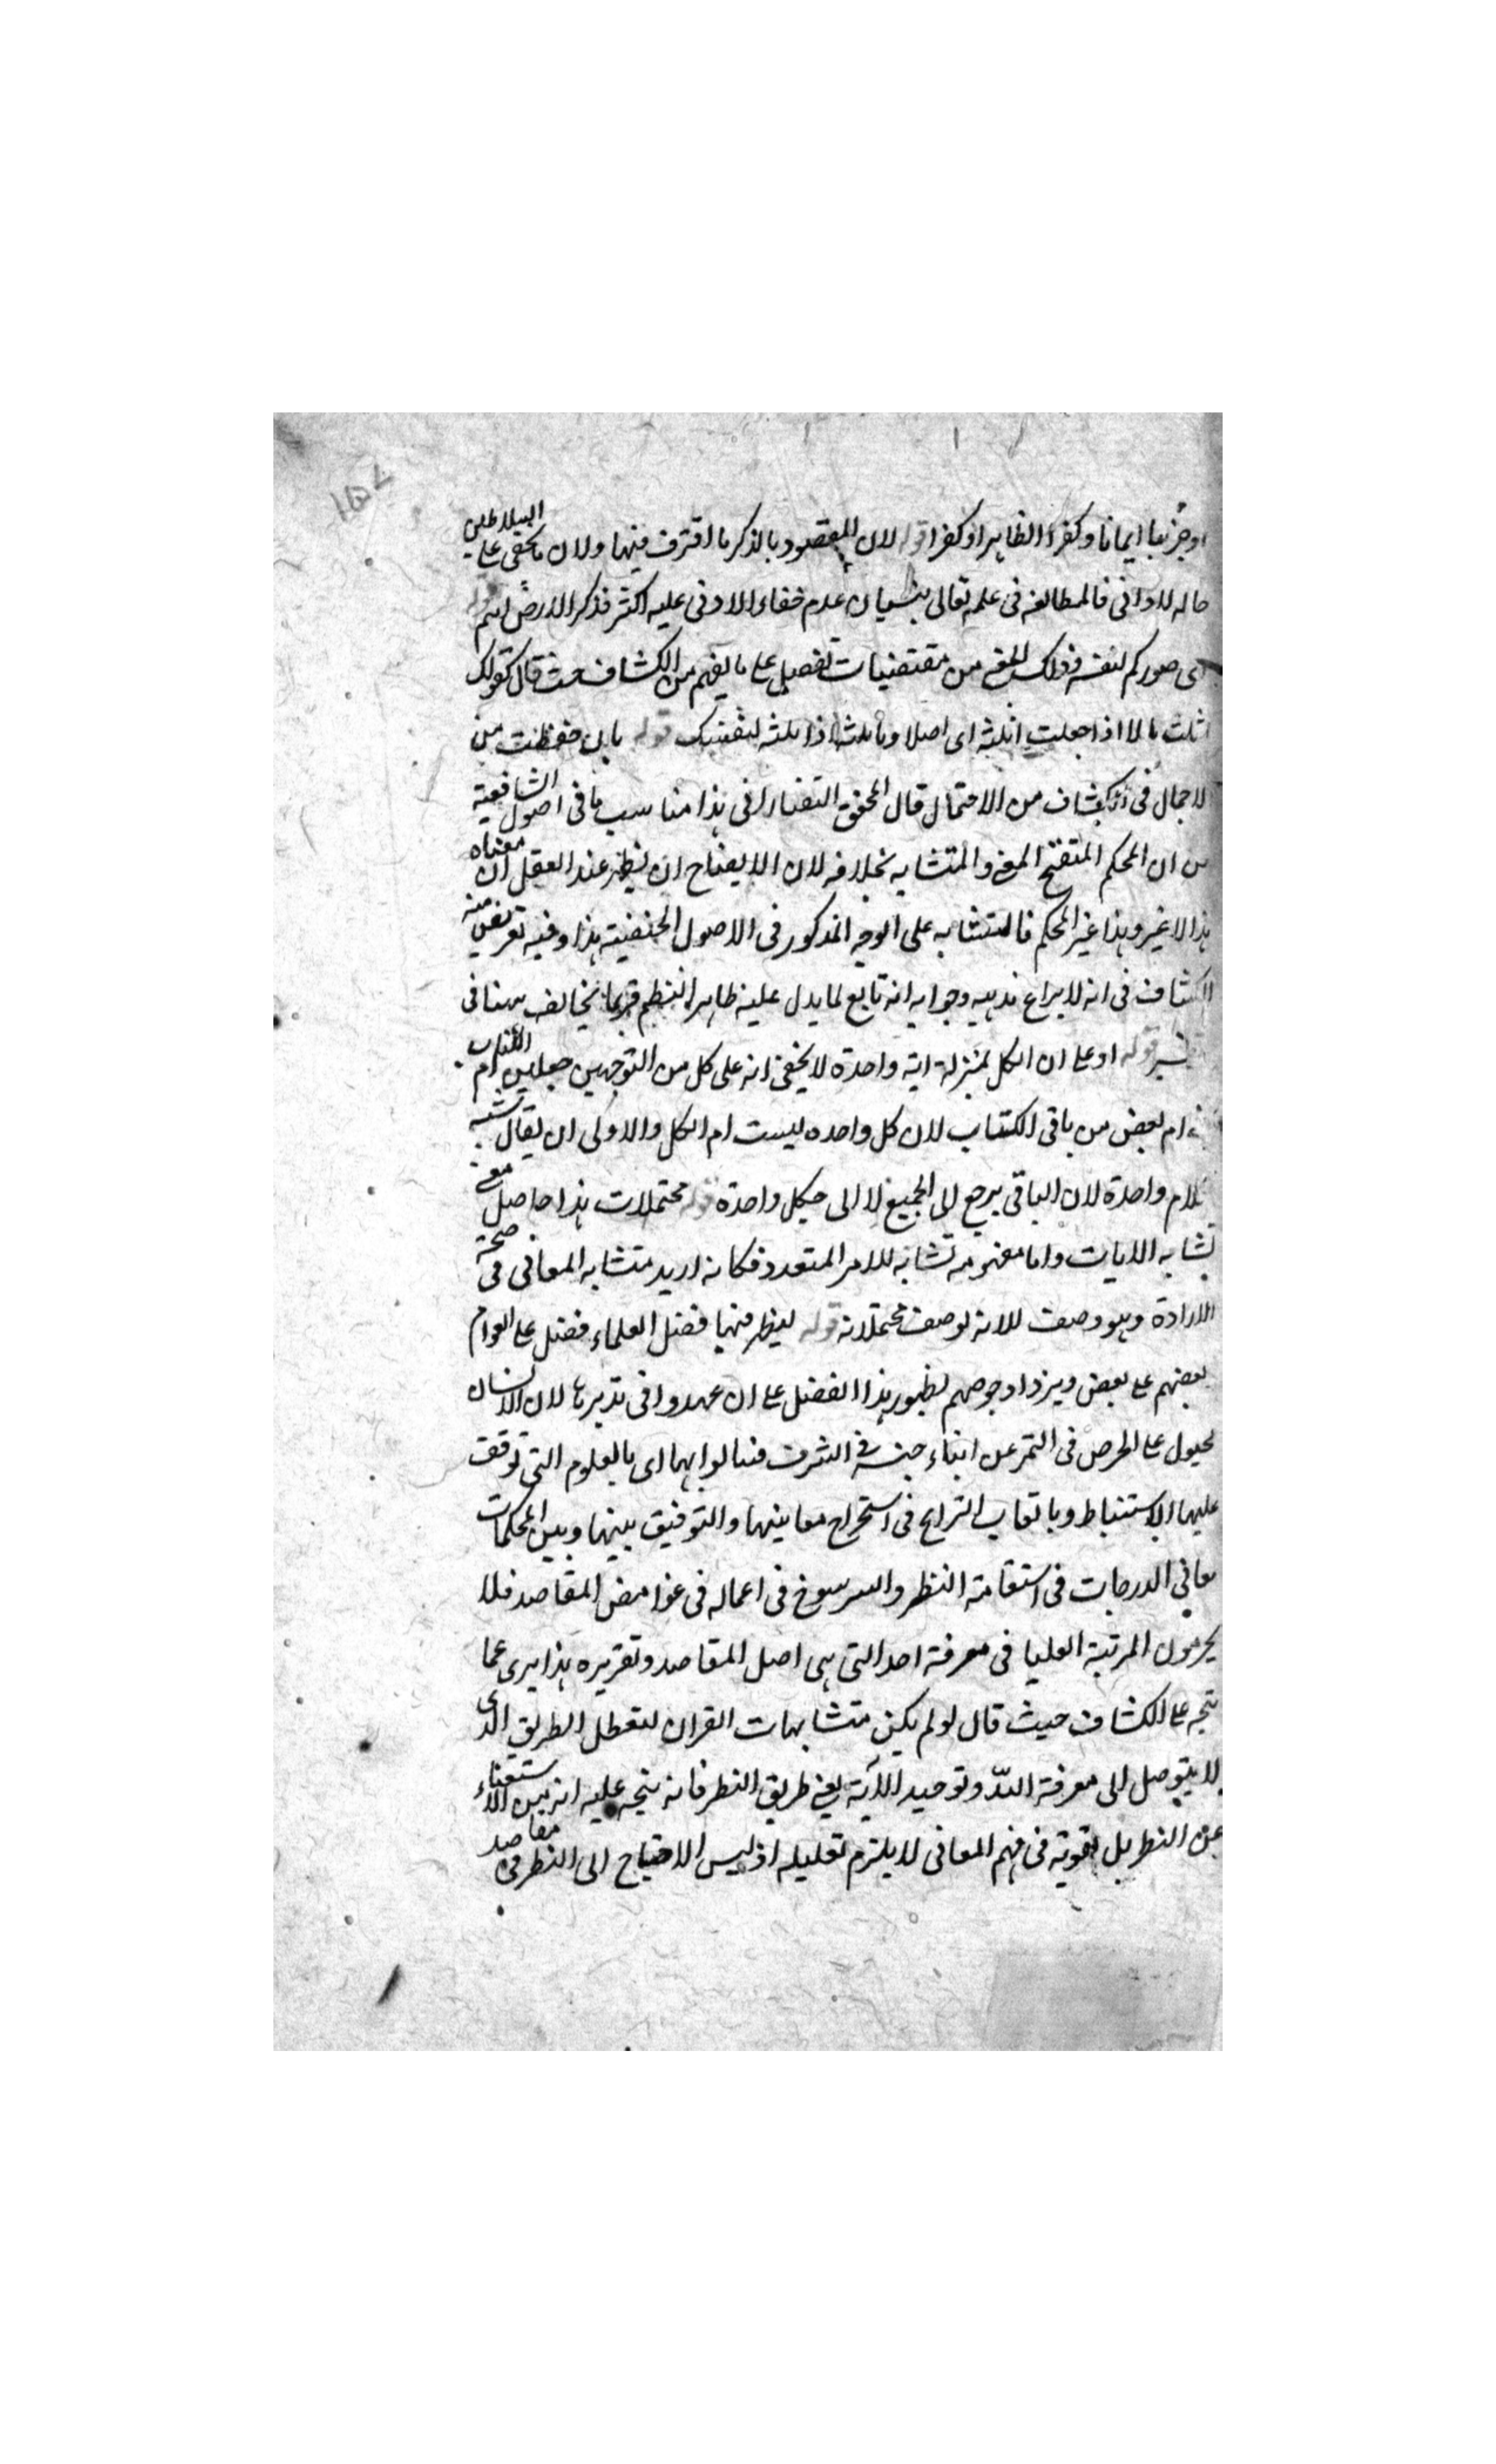 او جزئيا ايمانا وكفرا الظاهر او كفرا قوله لان المقصود بالذكر ما اقترف فيها ولان ما يخفى على السلاطين
حاله للاداني فالمطالعه فى علمه تعالى بنسيان عدم خفاء الادنى عليه اكثر فذكر الارض اهم قوله
اى صوركم لنفسه وذلك المعنى من مقتضيات تفعيل على ما يفهم من الكشاف حيث قال كقولك
اثلت مالا اذا جعلته اثلة اى اصلا وتاثلته اذا اثلته لنفسك قوله بان حفظت من
الاجمال فى الكشاف من الاحتمال قال المحقق التفتازانى هذا مناسب ما فى اصول الشافعية
من ان المحكم المتضح المعنى والمتشابه بخلافه لان الايضاح ان يظهر عند العقل ان معناه
هذا لا غير وهذا غير المحكم فالمتشابه على الوجه المذكور فى الاصول الحنفية هذا وفيه تعريض منه
الكشاف فى انه لا يراع مذهبه وجوابه انه تابع لما يدل عليه ظاهر النظم فربما يخالف ههنا فى
قوله او على ان الكل بمنزلة اية واحدة لا يخفى انه على كل من التوجهين جعلهن ام الكتاب
ام بعض من باقى الكتاب لان كل واحده ليست ام الكل والاولى ان يقال شبه
بام واحدة لان الباقى يرجع الى الجميع لا الى كل واحدة قوله محتملات هذا حاصل معنى
تشابه الايات واما مفهومه تشابه للامر المتعدد فكانه اريد متشابه المعانى فى صحة
الارادة وهو وصف للاية لوصف محتملاته قوله ليظهر فيها فضل العلماء فضل على العوام
بعضهم على بعض ويزداد حرصهم لظهور هذا الفضل على ان يجتهدوا فى تدبرها لان الانسان
مجبول على الحرص فى التميز عن ابناء جنسه فى الشرف فينالوا بها اى بالعلوم التى توقف
عليها الاستنباط وباتعاب القرايح فى استخراج معانيها والتوفيق بينها وبين المحكمات
معالي الدرجات فى استقامة النظر والرسوخ فى اعماله فى غوامض المقاصد فلا
يحرمون المرتبة العليا فى معرفة احد التى هى اصل المقاصد وتقريره هذا يرى عما
يتجه على الكشاف حيث قال لو لم يكن متشابهات القران لتعطل الطريق الذى
لا يتوصل الى معرفة الله وتوحيد الآية يعنى طريق النظر فانه يتجه عليه انه بين الاستغناء
عن النظر بل تقويته فى فهم المعانى لا يلتزم تعليله اذ ليس الاحتياج الى النظر فى مقاصد